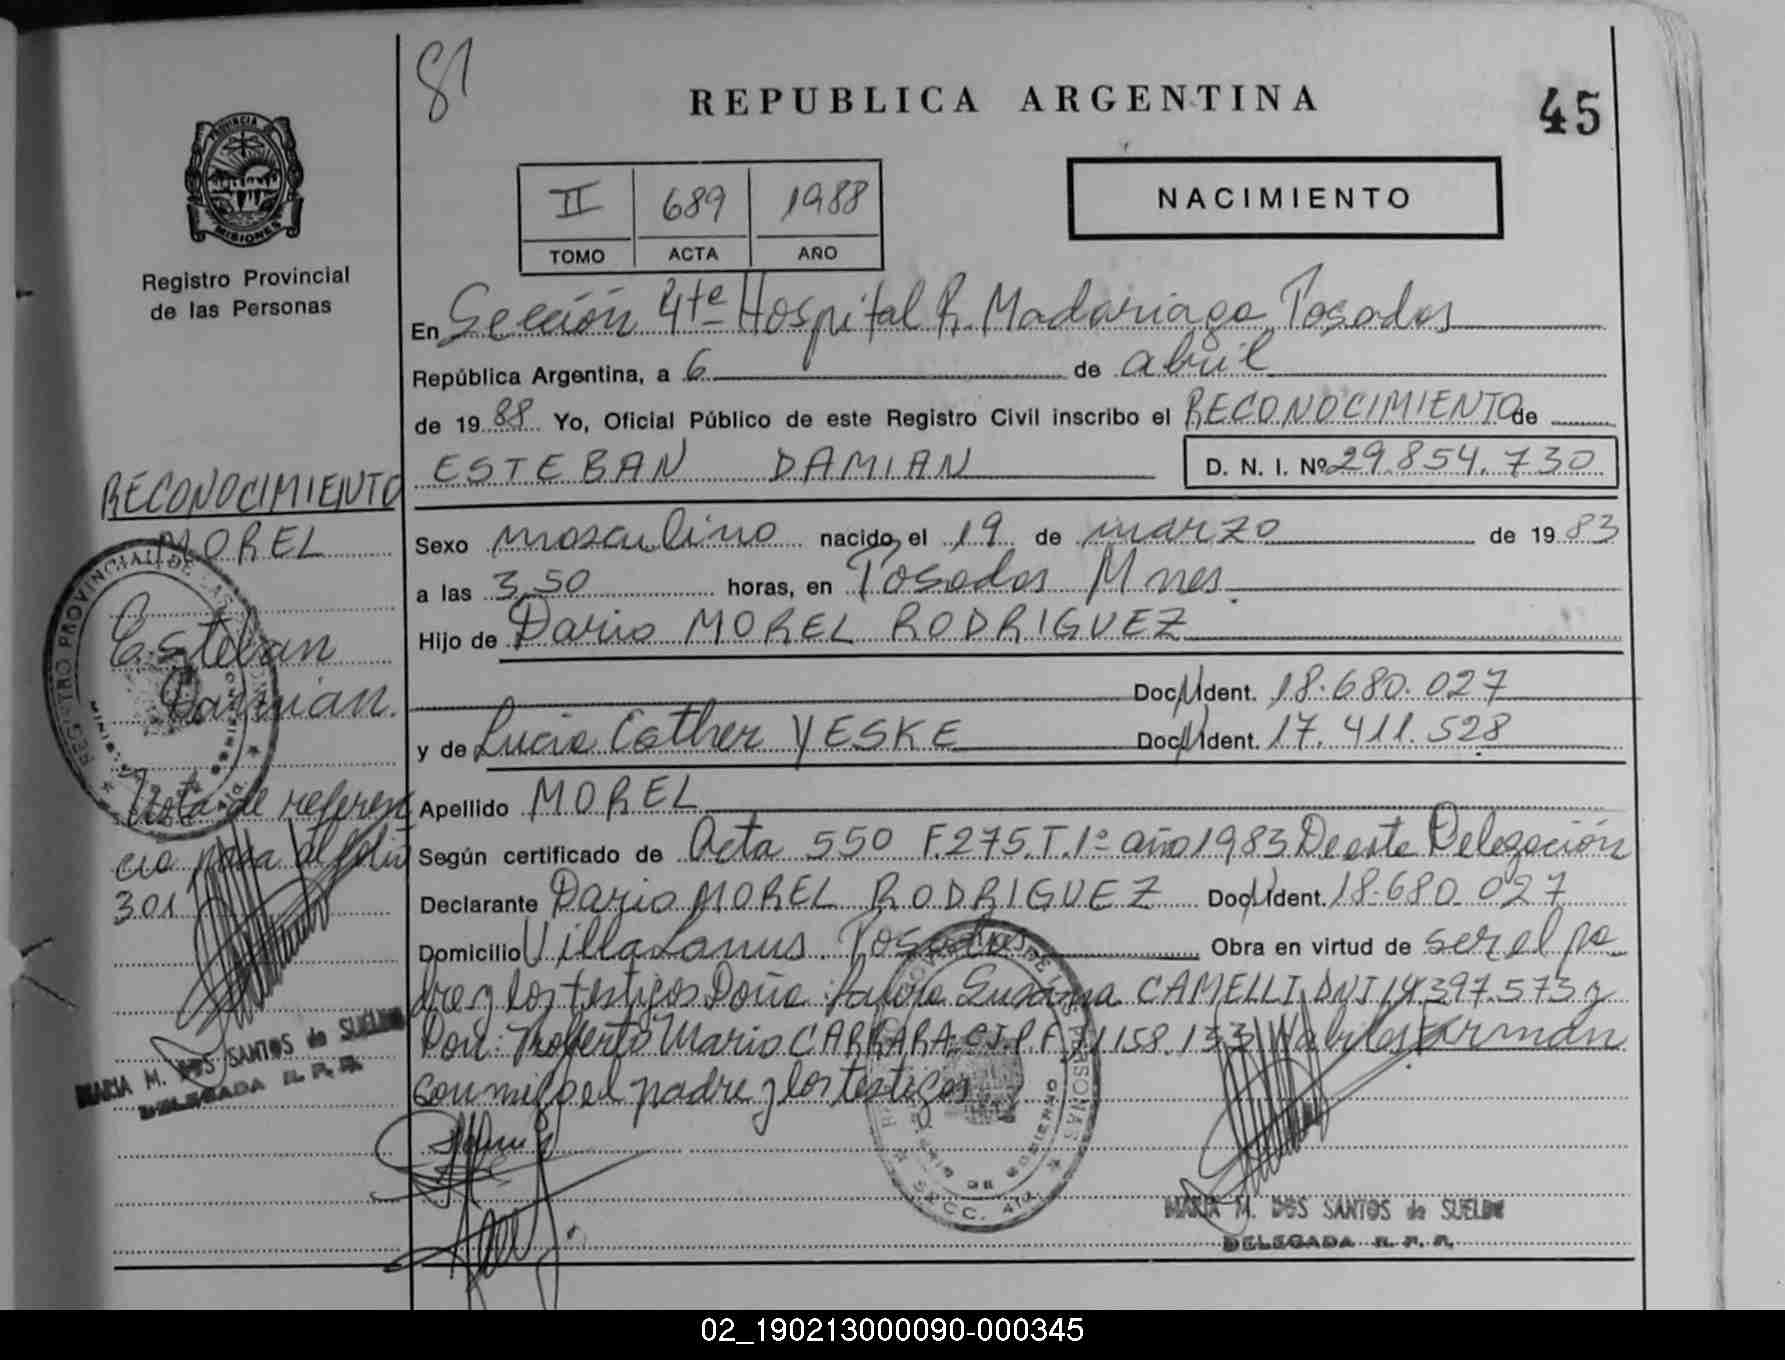 81
REPUBLICA ARGENTINA
45
PROVINCIA DE
MISIONES
Registro Provincial
de las Personas
II 689 1988
TOMO ACTA AÑO
NACIMIENTO
En Sección 4te Hospital R. Madariaga Posadas
República Argentina, a 6 de abril
de 1988 Yo, Oficial Público de este Registro Civil inscribo el RECONOCIMIENTO de
ESTEBAN DAMIAN D. N. I. Nº 29.854.730
RECONOCIMIENTO
MOREL
Esteban
Damian.
Nota de referen
cia pasa al folio
301
MARIA M. DOS SANTOS de SUELDO
DELEGADA R. P. P.
Sexo masculino nacido el 19 de marzo de 1983
a las 3,50 horas, en Posadas Mnes.
Hijo de Dario MOREL RODRIGUEZ
Doc. Ident. 18.680.027
y de Lucia Esther YESKE Doc. Ident. 17.411.528
Apellido MOREL
Según certificado de Acta 550 F.275.T.1º año 1983 De esta Delegación
Declarante Dario MOREL RODRIGUEZ Doc. Ident. 18.680.027
Domicilio Villa Lanus. Posadas Obra en virtud de ser el pa
dre y los testigos Doña Susana CAMELLI DNI 14.397.573 y
Don: Roberto Mario CARRARA C.I.P.F. 158.133
conmigo el padre y los testigos
REGISTRO PROVINCIAL DE LAS PERSONAS
MINISTERIO DE GOBIERNO
SECC. 4ta.
MARIA M. DOS SANTOS de SUELDO
DELEGADA R. P. P.
02_190213000090-000345